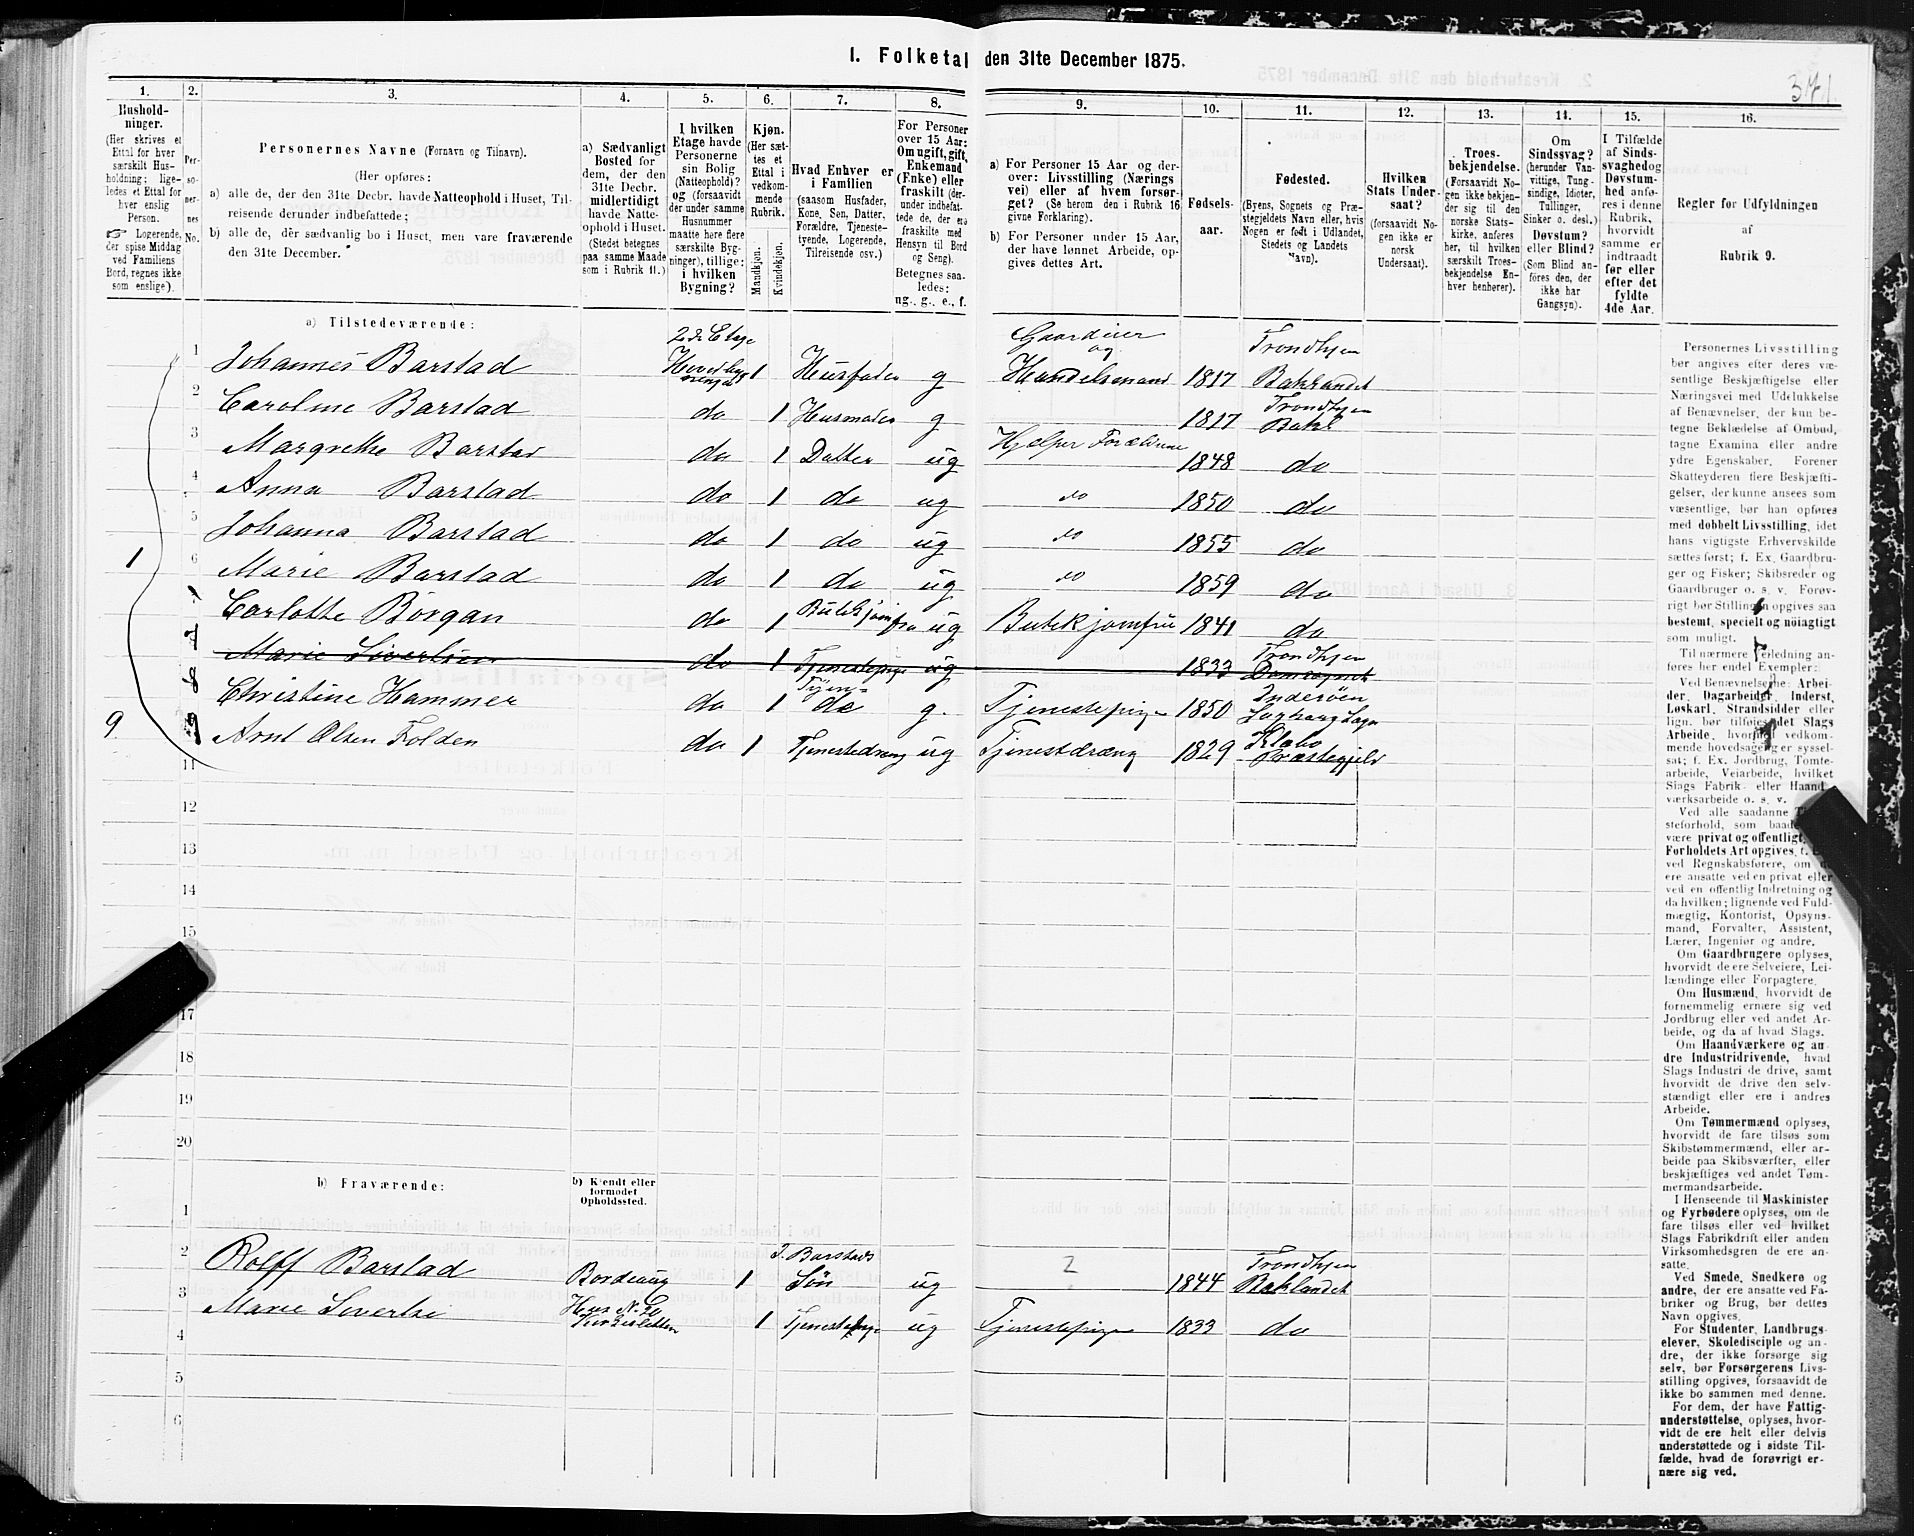 I. Folketal den 31te December 1875.
371.
1.
2.
3.
4.
5.
6.
7.
8.
9.
10.
11.
12.
13.
14.
15.
16.
Hushold-
ninger.
(Her skrives et
Ettal for hver
særskilt Hus-
holdning; lige-
ledes et Ettal for
hver enslig
Person.
☞ Logerende,
der spise Middag
ved Familiens
Bord, regnes ikke
som enslige).
Per-
so-
ner-
nes
No.
Personernes Navne (Fornavn og Tilnavn).
(Her opføres:
a) alle de, der den 31te Decbr. havde Natteophold i Huset, Til-
reisende derunder indbefattede;
b) alle de, der sædvanlig bo i Huset, men vare fraværende
den 31te December.
a) Sædvanligt
Bosted for
dem, der den
31te Decbr.
midlertidigt
havde Natte-
ophold i Huset.
(Stedet betegnes
paa samme Maade
som i Rubrik 11.)
I hvilken
Etage havde
Personerne
sin Bolig
(Natteophold)?
og (forsaavidt
der under samme
Husnummer
maatte være flere
særskilte Byg-
ninger), tillige:
i hvilken
Bygning?
Kjøn.
(Her sæt-
tes et
Ettal i
vedkom-
mende
Rubrik.
Mandkjøn.
Kvindekjøn.
Hvad Enhver er
i Familien
(saasom Husfader,
Kone, Søn, Datter,
Forældre, Tjeneste-
tyende, Logerende,
Tilreisende osv.)
For Personer
over 15 Aar:
Om ugift, gift,
Enkemand
(Enke) eller
fraskilt (der-
under indbefat-
tede de, der ere
fraskilte med
Hensyn til Bord
og Seng).
Betegnes saa-
ledes:
ug., g., e., f.
a) For Personer 15 Aar og der-
over: Livsstilling (Nærings
vei) eller af hvem forsør-
get? (Se herom den i Rubrik 16
givne Forklaring).
b) For Personer under 15 Aar,
der have lønnet Arbeide, op-
gives dettes Art.
Fødsels-
aar.
Fødested.
(Byens, Sognets og Præ-
stegjeldets Navn eller, hvis
Nogen er født i Udlandet,
Stedets og Landets
Navn).
Hvilken
Stats Under-
saat?
(forsaavidt No-
gen ikke er
norsk
Undersaat).
Troes-
bekjendelse.
(Forsaavidt No-
gen ikke bekjen-
der sig til den
norske Stats-
kirke, anføres
her, til hvilken
særskilt Troes-
bekjendelse En-
hver henhører).
Om
Sindssvag?
(herunder Van-
vittige, Tung-
sindige, Idioter,
Tullinger,
Sinker o. desl.)
Døvstum?
eller Blind?
(Som Blind an-
føres den, der
ikke har
Gangsyn).
I Tilfælde
af Sinds-
svaghed og
Døvstum-
hed anfø-
res i denne
Rubrik,
hvorvidt
samme er
indtraadt
før eller
efter det
fyldte
4de Aar.
Regler før Udfyldningen
af
Rubrik 9.
a) Tilstedeværende:
1 Johannes Barstad 2de Etage 1 Husfader g Gaardeier og Handelsmand 1817 Trondhjem Baklandet
2 Caroline Barstad do 1 Husmoder g 1817 Trondhjem Bakl
3 Margrethe Barstad do 1 Datter ug Hjelper Forældrene 1848 do
4 Anna Barstad do 1 do ug do 1850 do
5 Johanna Barstad do 1 do ug do 1855 do
1 6 Marie Barstad do 1 do ug do 1859 do
Carlotte Borgan do 1 Butikjomfru ug Butikjomfru 1841 do
7 Marie Sivertsen do 1 Tjenestepige ug 1833 Trondhjem
8 Christine Hammer do 1 Tjen= de g. Tjenestepige 1850 Inderøen
9 9 Arnt Olsen Folden do 1 Tjenestedreng ug Tjenestdræng 1829 Klæbo Præstegjeld
11
12
13
14
15
17
18
19
20
b) Fraværende:
b) Kjendt eller
formodet
Opholdssted.
1
2 Rolff Barstad Bordeaux 1 J. Barstads Søn ug 1844 Trondhjem Baklandet
3 Marie Sivertse Hus No. 20 1 Tjenestepige ug Tjenestepige 1833 do
4
5
6
Personernes Livsstilling
bør angives efter deres væ-
sentlige Beskjæftigelse eller
Næringsvei med Udelukkelse
af Benævnelser, der kun be-
tegne Beklædelse af Ombud,
tagne Examina eller andre
ydre Egenskaber. Forener
Skatteyderen flere Beskjæfti-
gelser, der kunne ansees som
væsentlige, bør han opføres
med dobbelt Livsstilling, idet
hans vigtigste Erhvervskilde
sættes først; f. Ex. Gaardbru-
ger og Fisker; Skibsreder og
Gaardbruger o. s. v. Forøv-
rigt bør Stillingen opgives saa
bestemt, specielt og nøiagtigt
som muligt.
Til nærmere Veiledning an-
føres her endel Exempler:
Ved Benævnelserne: Arbei-
der, Dagarbeider, Inderst,
Løskarl, Strandsidder eller
lign. bør tilføies det Slags
Arbeide, hvormed vedkom-
mende hovedsagelig er syssel-
sat; f. Ex. Jordbrug, Tomte-
arbeide, Veiarbeide, hvilket
Slags Fabrik- eller Haand-
værksarbeide o. s. v.
Ved alle saadanne
steforhold, som baade
være privat og offentligt,
Forholdets Art opgives,
ved Regnskabsførere, om
ere ansatte ved en privat eller
ved en offentlig Indretning og
da hvilken; lignende ved Fuld-
mægtig, Kontorist, Opsyns-
mand, Forvalter, Assistent,
Lærer, Ingeniør og andre.
Om Gaardbrugere oplyses,
hvorvidt de ere Selveiere, Lei-
lændinge eller Forpagtere.
Om Husmænd, hvorvidt de
fornemmelig ernære sig ved
Jordbrug eller ved andet Ar-
beide, og da af hvad Slags.
Om Haandværkere og an-
dre Industridrivende, hvad
Slags Industri de drive, samt
hvorvidt de drive den selv-
stændigt eller ere i andres
Arbeide.
Om Tømmermænd oplyses,
hvorvidt de fare tilsøs som
Skibstømmermænd, eller ar-
beide paa Skibsværfter, eller
beskjæftiges ved andet Tøm-
mermandsarbeide.
I Henseende til Maskinister
og Fyrbødere oplyses, om de
fare tilsøs eller ved hvilket
Slags Fabrikdrift eller anden
Virksomhedsgren de ere an-
satte.
Ved Smede, Snedkere og
andre, der ere ansatte ved Fa-
briker og Brug, bør dettes
Navn opgives.
For Studenter, Landbrugs-
elever, Skoledisciple og an-
dre, der ikke forsørge sig
selv, bør Forsørgerens Livs-
stilling opgives, forsaavidt de
ikke bo sammen med denne.
For dem, der have Fattig-
understøttelse, oplyses, hvor-
vidt de ere helt eller delvis
understøttede og i sidste Til-
fælde, hvad de forøvrigt er-
nære sig ved.